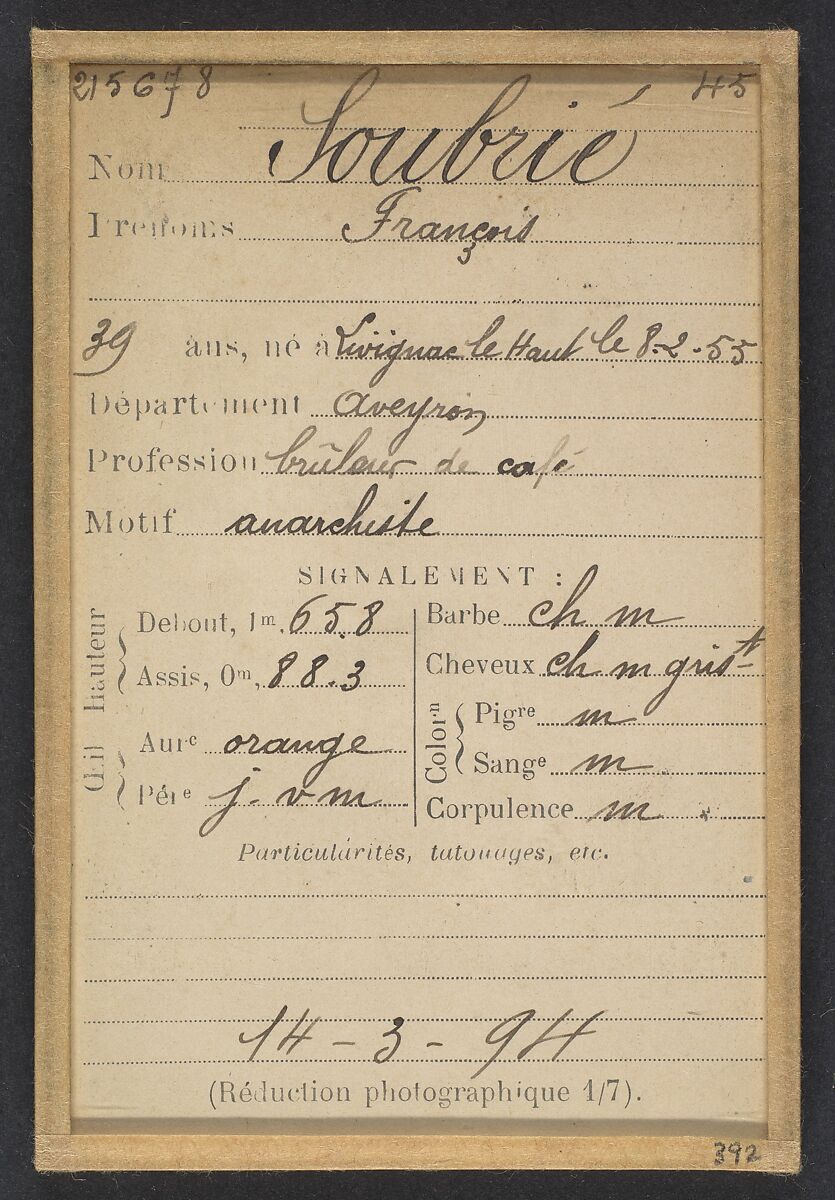 215678 45
Nom Soubrié
Prénoms François
39 ans, né à Livignac le Haut le 8-2-55
Département Aveyron
Profession brûleur de café
Motif anarchiste
SIGNALEMENT :
Hauteur
Debout, 1m, 65.8
Assis, 0m, 88.3
Œil
Aure orange
Pére j. v m
Barbe ch m
Cheveux ch m grist
Colorn
Pigre m
Sange m
Corpulence m
Particularités, tatouages, etc.
14-3-94
(Réduction photographique 1/7).
392